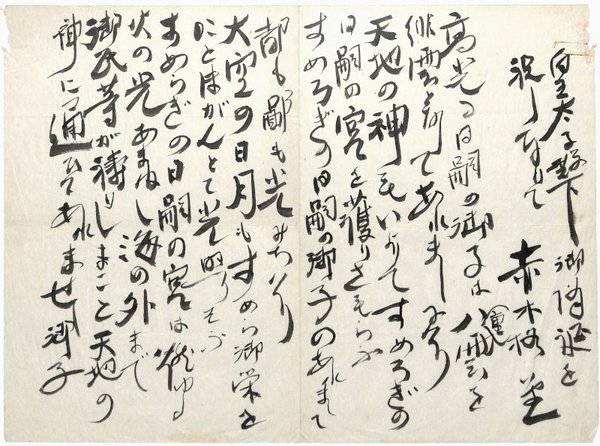 皇太子殿下御降誕を
祝し 赤木格堂
高光る日嗣の御子は八雲を
別てあれましけり
天地の神もいよりてすめろぎの
日嗣の宮を護りさもらふ
すめろぎの日嗣の御子のあれまして
都も鄙も光みちけり
大空の日月もすめら御栄を
ことほがんとて光明りそふ
すめらぎの日嗣の宮は燃ゆる
火の光あまねし海の外まで
御民等が祷りしまこと天地の
神に通ひてあれませ御子